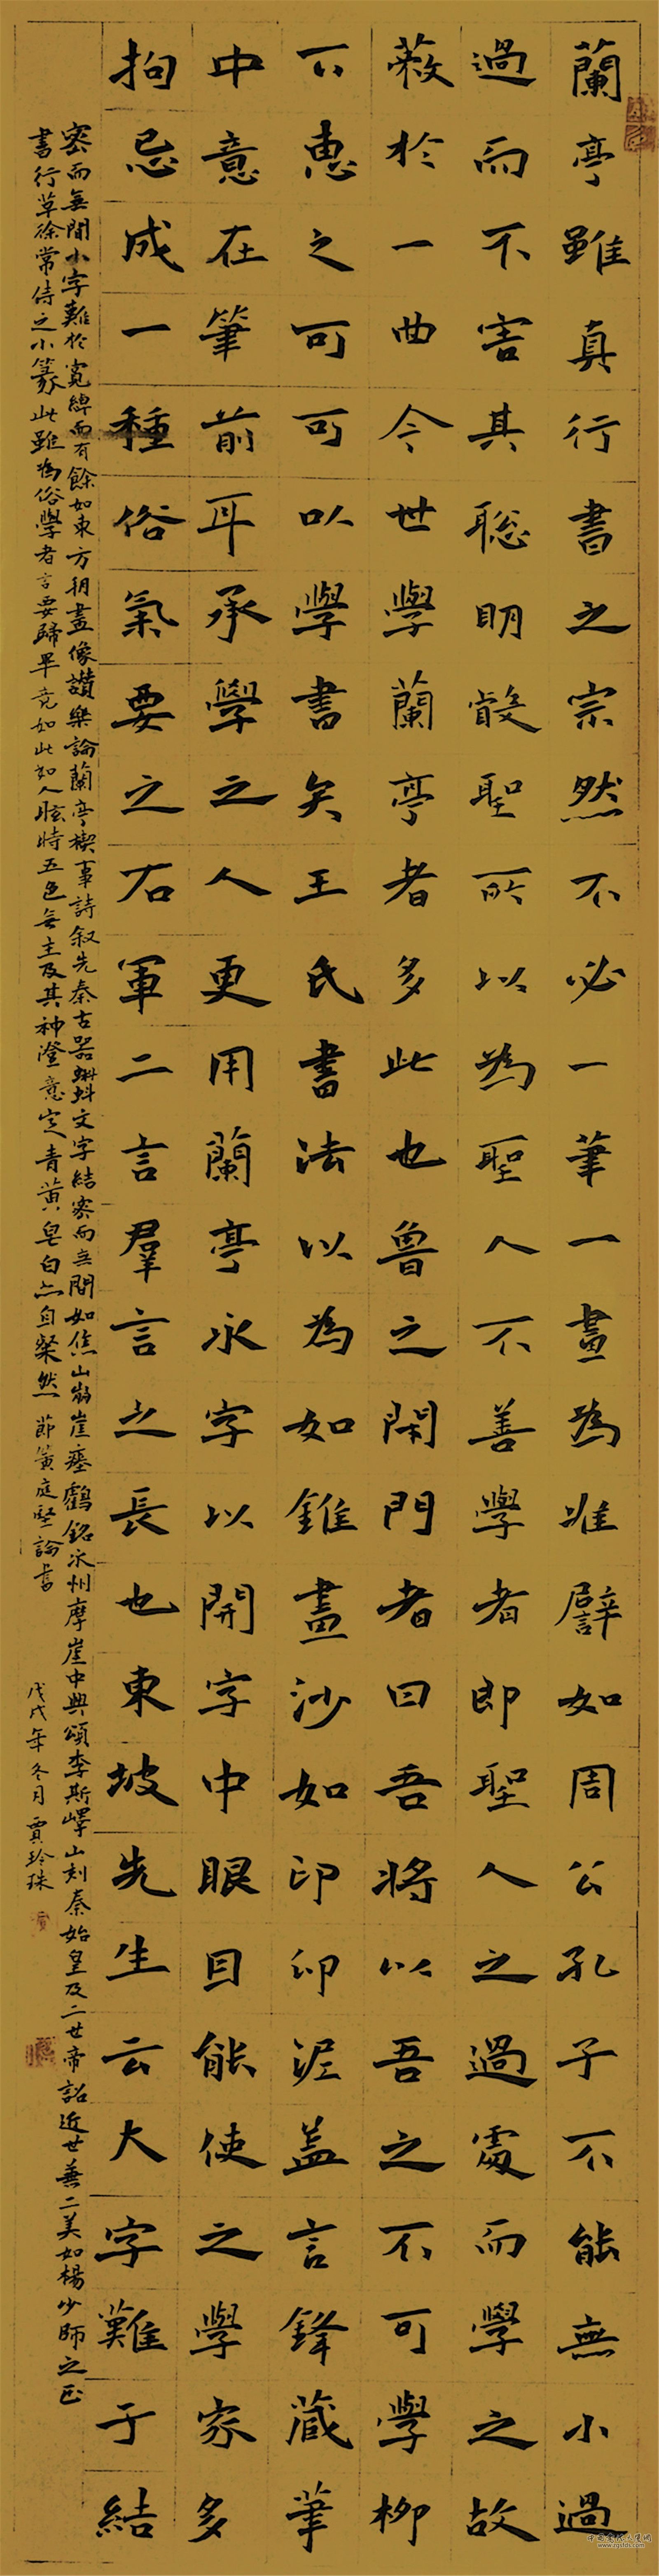 蘭亭雖真行書之宗然不必一筆一畫為准譬如周公孔子不能無小過
過而不害其聡明睿聖所以為聖人不善學者即聖人之過處而學之故
蔽於一曲今世學蘭亭者多此也魯之閉門者曰吾將以吾之不可學柳
下惠之可可以學書矣王氏書法以為如錐畫沙如印印泥盖言鋒藏筆
中意在筆前耳承學之人更用蘭亭永字以開字中眼目能使之學家多
拘忌成一種俗氣要之右軍二言羣言之長也東坡先生云大字難于結
密而無間小字難於寛綽而有餘如東方朔畫像讃樂論蘭亭禊事詩叙先秦古器蝌蚪文字結密而無間如焦山崩崖瘞鶴銘永州摩崖中興頌李斯嶧山刻秦始皇及二世帝詔近世兼二美如楊少師之正
書行草徐常侍之小篆此雖為俗學者言要歸畢竟如此如人眩時五色無主及其神澄意定青黄皂白亦自粲然 節黄庭堅論書 戊戌年冬月賈玲珠
www.zgsfds.com